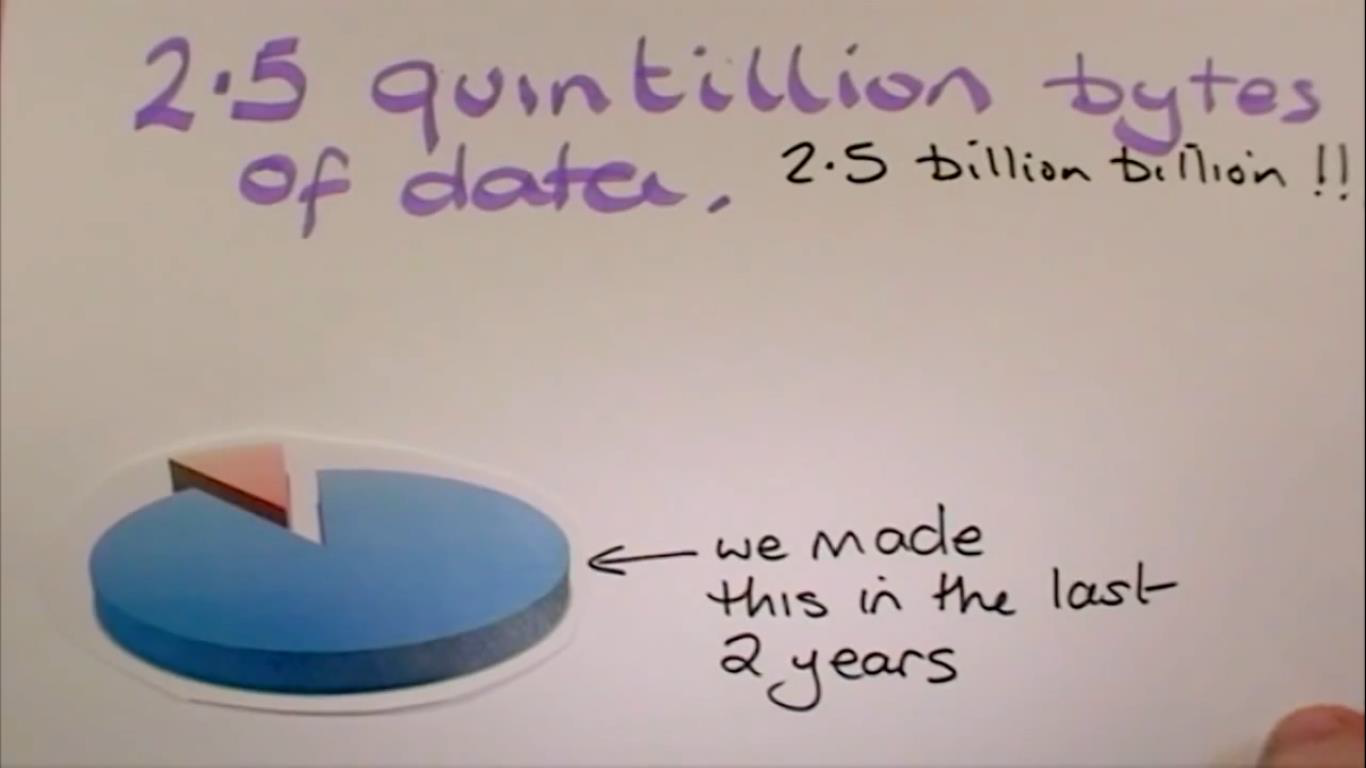 2.5 quintillion bytes
of data.
2.5 billion billion !!
we made
this in the last
2 years